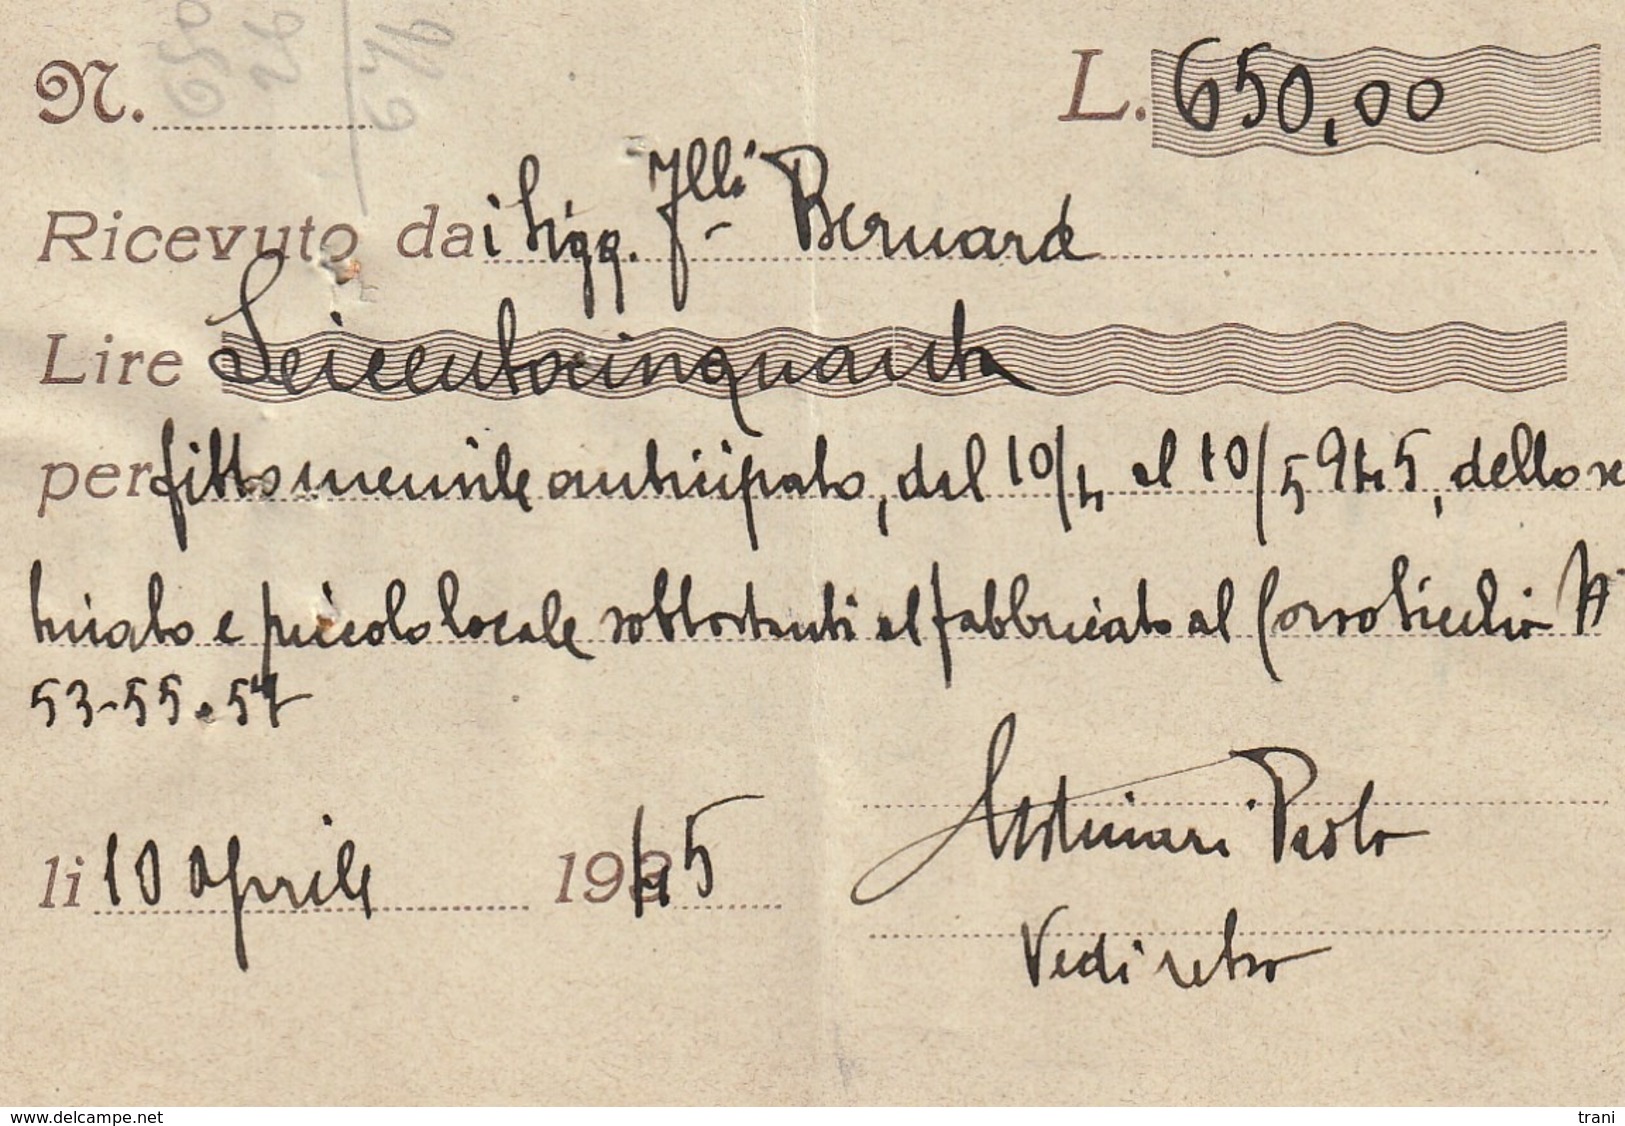 N. L. 650,00
Ricevuto dai Sigg. F.lli Bernard
Lire Seicentocinquanta
per fitto mensile anticipato, dal 10/4 al 10/5 945, dello sc
antinato e piccolo locale sottostanti al fabbricato al Corso Sicilia N.
53-55 e 57
Paolo
li 10 Aprile 1945
Vedi retro
www.delcampe.net trani